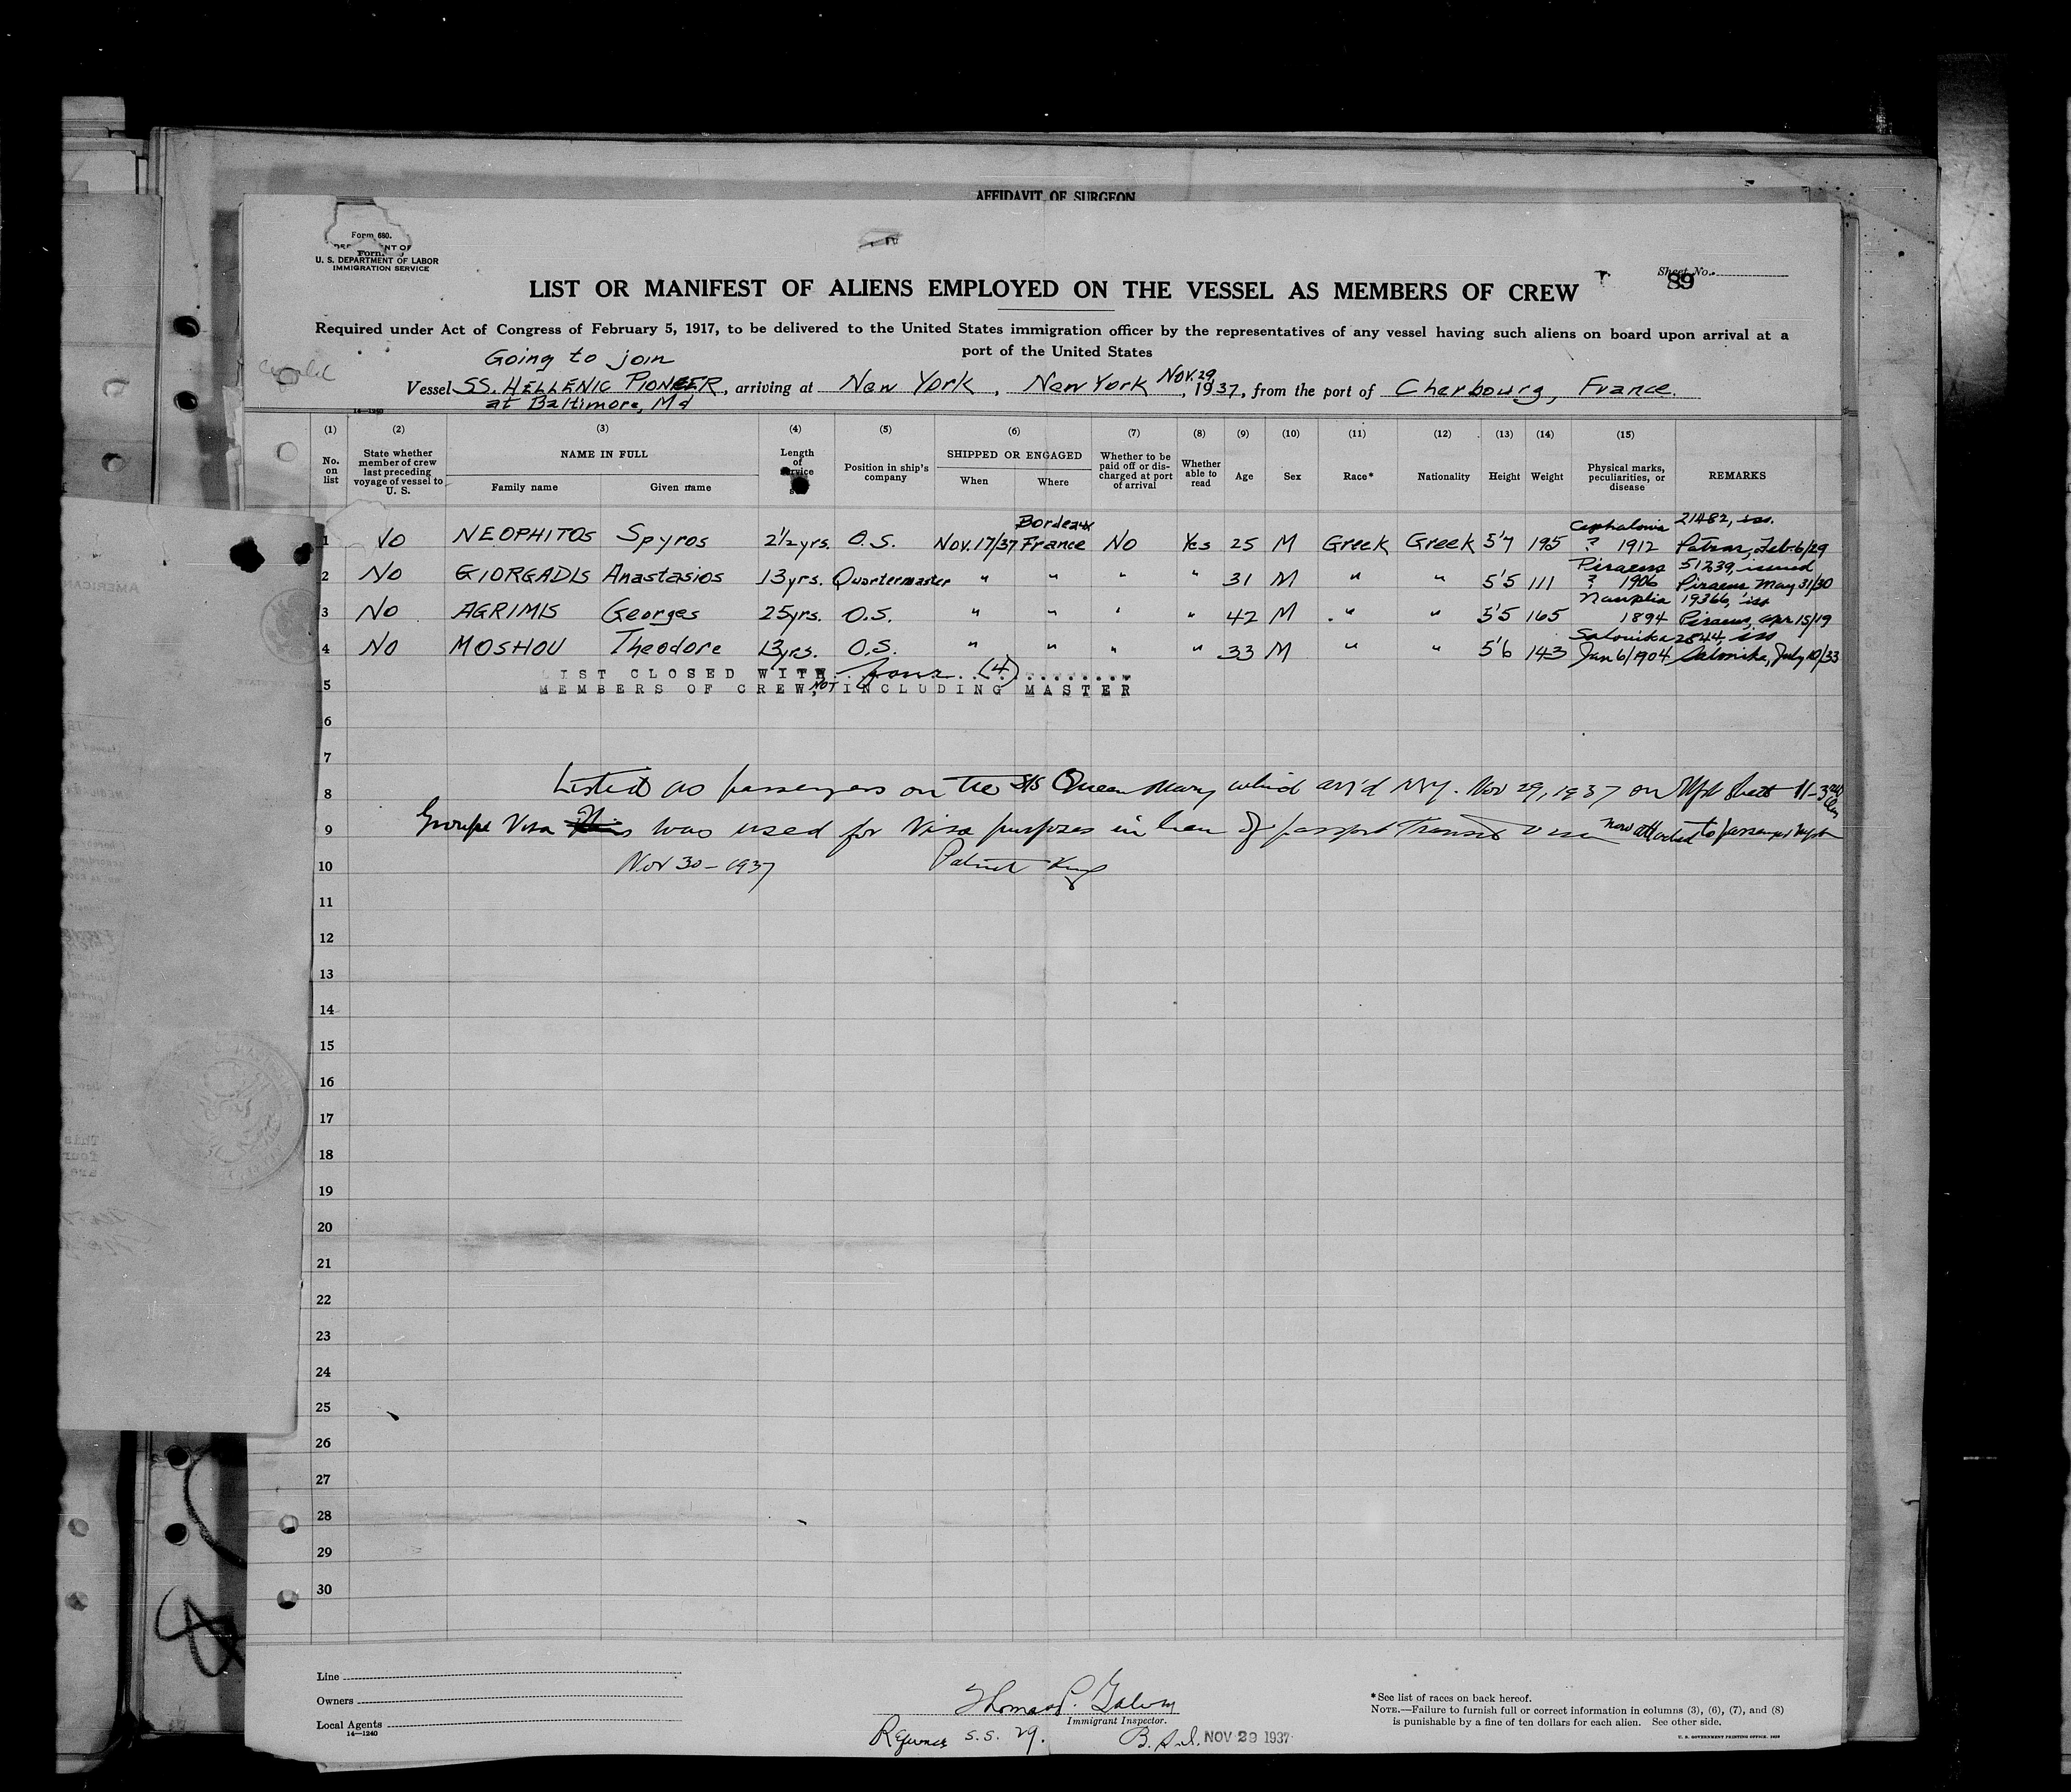 AFFIDAVIT OF SURGEON
Form 680.
U. S. DEPARTMENT OF LABOR
IMMIGRATION SERVICE
Sheet No.
89
LIST OR MANIFEST OF ALIENS EMPLOYED ON THE VESSEL AS MEMBERS OF CREW
Required under Act of Congress of February 5, 1917, to be delivered to the United States immigration officer by the representatives of any vessel having such aliens on board upon arrival at a
port of the United States
Going to join
Vessel SS. HELLENIC PIONEER, arriving at New York, New York Nov. 29, 1937, from the port of Cherbourg, France.
at Baltimore, Md
14-1240
(1) (2) (3) (4) (5) (6) (7) (8) (9) (10) (11) (12) (13) (14) (15)
No. on list State whether member of crew last preceding voyage of vessel to U. S. NAME IN FULL Family name Given name Length of service Position in ship's company SHIPPED OR ENGAGED When Where Whether to be paid off or discharged at port of arrival Whether able to read Age Sex Race* Nationality Height Weight Physical marks, peculiarities, or disease REMARKS
1 No NEOPHITOS Spyros 2½ yrs. O.S. Nov. 17/37 Bordeaux France No Yes 25 M Greek Greek 5'7 195 Cephalonia ? 1912 21482, iss. Patras, Feb. 6/29
2 No GIORGADIS Anastasios 13 yrs. Quartermaster " " " " 31 M " " 5'5 111 Piraeus ? 1906 51239, issued Piraeus May 31/30
3 No AGRIMIS Georges 25 yrs. O.S. " " " " 42 M " " 5'5 165 Nauplia 1894 19366, iss Piraeus, Apr 15/19
4 No MOSHOU Theodore 13 yrs. O.S. " " " " 33 M " " 5'6 143 Salonika Jan 6/1904 2844, iss Salonika, July 10/33
LIST CLOSED WITH four (4)
5 MEMBERS OF CREW, NOT INCLUDING MASTER
6
7
8 Listed as passengers on the S/S Queen Mary which arr'd N.Y. Nov 29, 1937 on Mfst Sheet 11-3rd Cls
9 Groupe Visa was used for Visa purposes in lieu of passport Transit Visa now attached to passenger mfst
10 Nov 30-1937 Patrick King
11
12
13
14
15
16
17
18
19
20
21
22
23
24
25
26
27
28
29
30
Line
Owners
Local Agents
14-1240
Thomas P. Galvin
Immigrant Inspector.
S.S. 29. B.S.I. NOV 29 1937
*See list of races on back hereof.
NOTE.—Failure to furnish full or correct information in columns (3), (6), (7), and (8)
is punishable by a fine of ten dollars for each alien. See other side.
U. S. GOVERNMENT PRINTING OFFICE.